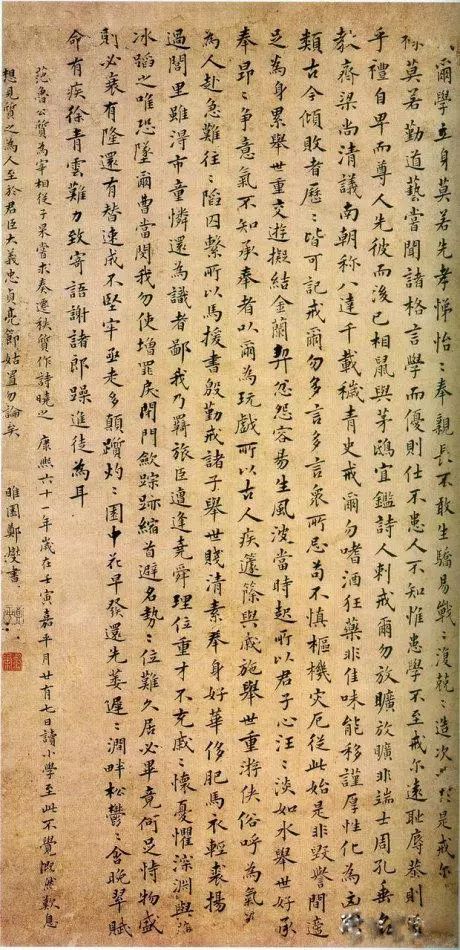 爾學立身莫若先孝悌怡〻奉親長不敢生驕易戰〻復兢〻造次於是戒尔
祿莫若勤道藝嘗聞諸格言學而優則仕不患人不知惟患學不至戒尔遠恥辱恭則
乎禮自卑而尊人先彼而後己相鼠與茅鴟宜鑑詩人刺戒爾勿放曠放曠非端士周孔垂名
教齊梁尚清議南朝稱八達千載穢青史戒爾勿嗜酒狂藥非佳味能移謹厚性化為
類古今傾敗者歷〻皆可記戒爾勿多言多言衆所忌苟不慎樞機灾厄從此始是非毀譽間適
足為身累舉世重交遊擬結金蘭契忿怨容易生風波當時起所以君子心汪〻淡如水舉世好承
奉昂〻争意氣不知承奉者以爾為玩戲所以古人疾籧篨與戚施舉世重游俠俗呼為氣
為人赴急難往〻陷囚繫所以馬援書殷勤戒諸子舉世賤清素奉身好華侈肥馬衣輕裘揚
過閭里雖得市童憐還為識者鄙我乃羇旅臣遭逢堯舜理位重才不充戚〻懷憂懼深淵與
冰蹈之唯恐墜爾曹當閔我勿使增罪戾閉門斂踪跡縮首避名勢〻位難久居必畢竟何足恃物盛
則必衰有隆還有替速成不堅牢亟走多顛躓灼〻園中花早發還先萎遲〻澗畔松鬱〻含晚翠賦
命有疾徐青雲難力致寄語謝諸郎躁進徒為耳
范魯公質為宰相從子杲嘗求奏遷秩質作詩曉之 康熙六十一年歲在壬寅嘉平月廿有七日讀小學至此不覺慨然歎息
想見質之為人至於君臣大義忠貞亮節姑置勿論矣 雎園鄭燮書